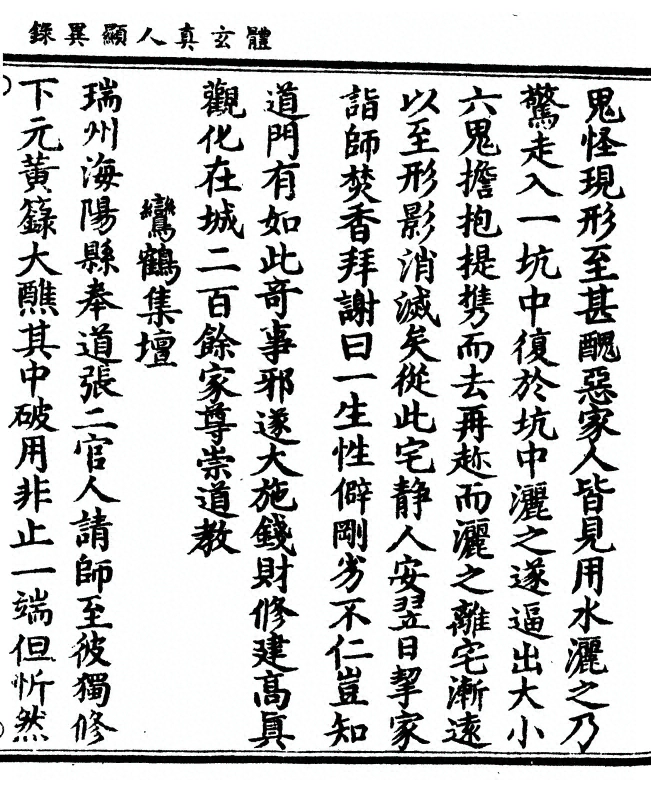 體玄真人顯異錄
鬼怪現形至甚醜惡家人皆見用水灑之乃
驚走入一坑中復於坑中灑之遂逼出大小
六鬼擔抱提携而去再趂而灑之離宅漸遠
以至形影消滅矣從此宅静人安翌日挈家
詣師焚香拜謝曰一生性僻剛劣不仁豈知
道門有如此竒事邪遂大施錢財修建髙真
觀化在城二百餘家尊崇道教
鸞鶴集壇
瑞州海陽縣奉道張二官人請師至彼獨修
下元黃籙大醮其中破用非止一端但忻然